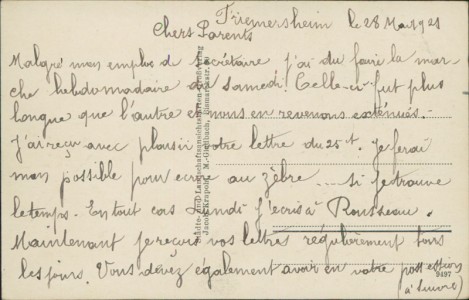 Friemersheim le 28 Mai 1921
Chers Parents
Malgré mon emploi de secrétaire j'ai du faire la mar-
che hebdomadaire du samedi. Celle-ci fut plus
longue que l'autre et nous en revenons exténués.-
J'ai reçu avec plaisir votre lettre du 25t. Je ferai
mon possible pour ecrire au zèbre ..... si je trouve
le temps. En tout cas Lundi j'écris à Rousseau.
Maintenant je reçois vos lettres régulièrement tous
les jours. Vous devez également avoir en votre possession
(à suivre)
Städte- und Landschaftsansichten-
Jacob Krapohl, M.-Gladbach,
9497